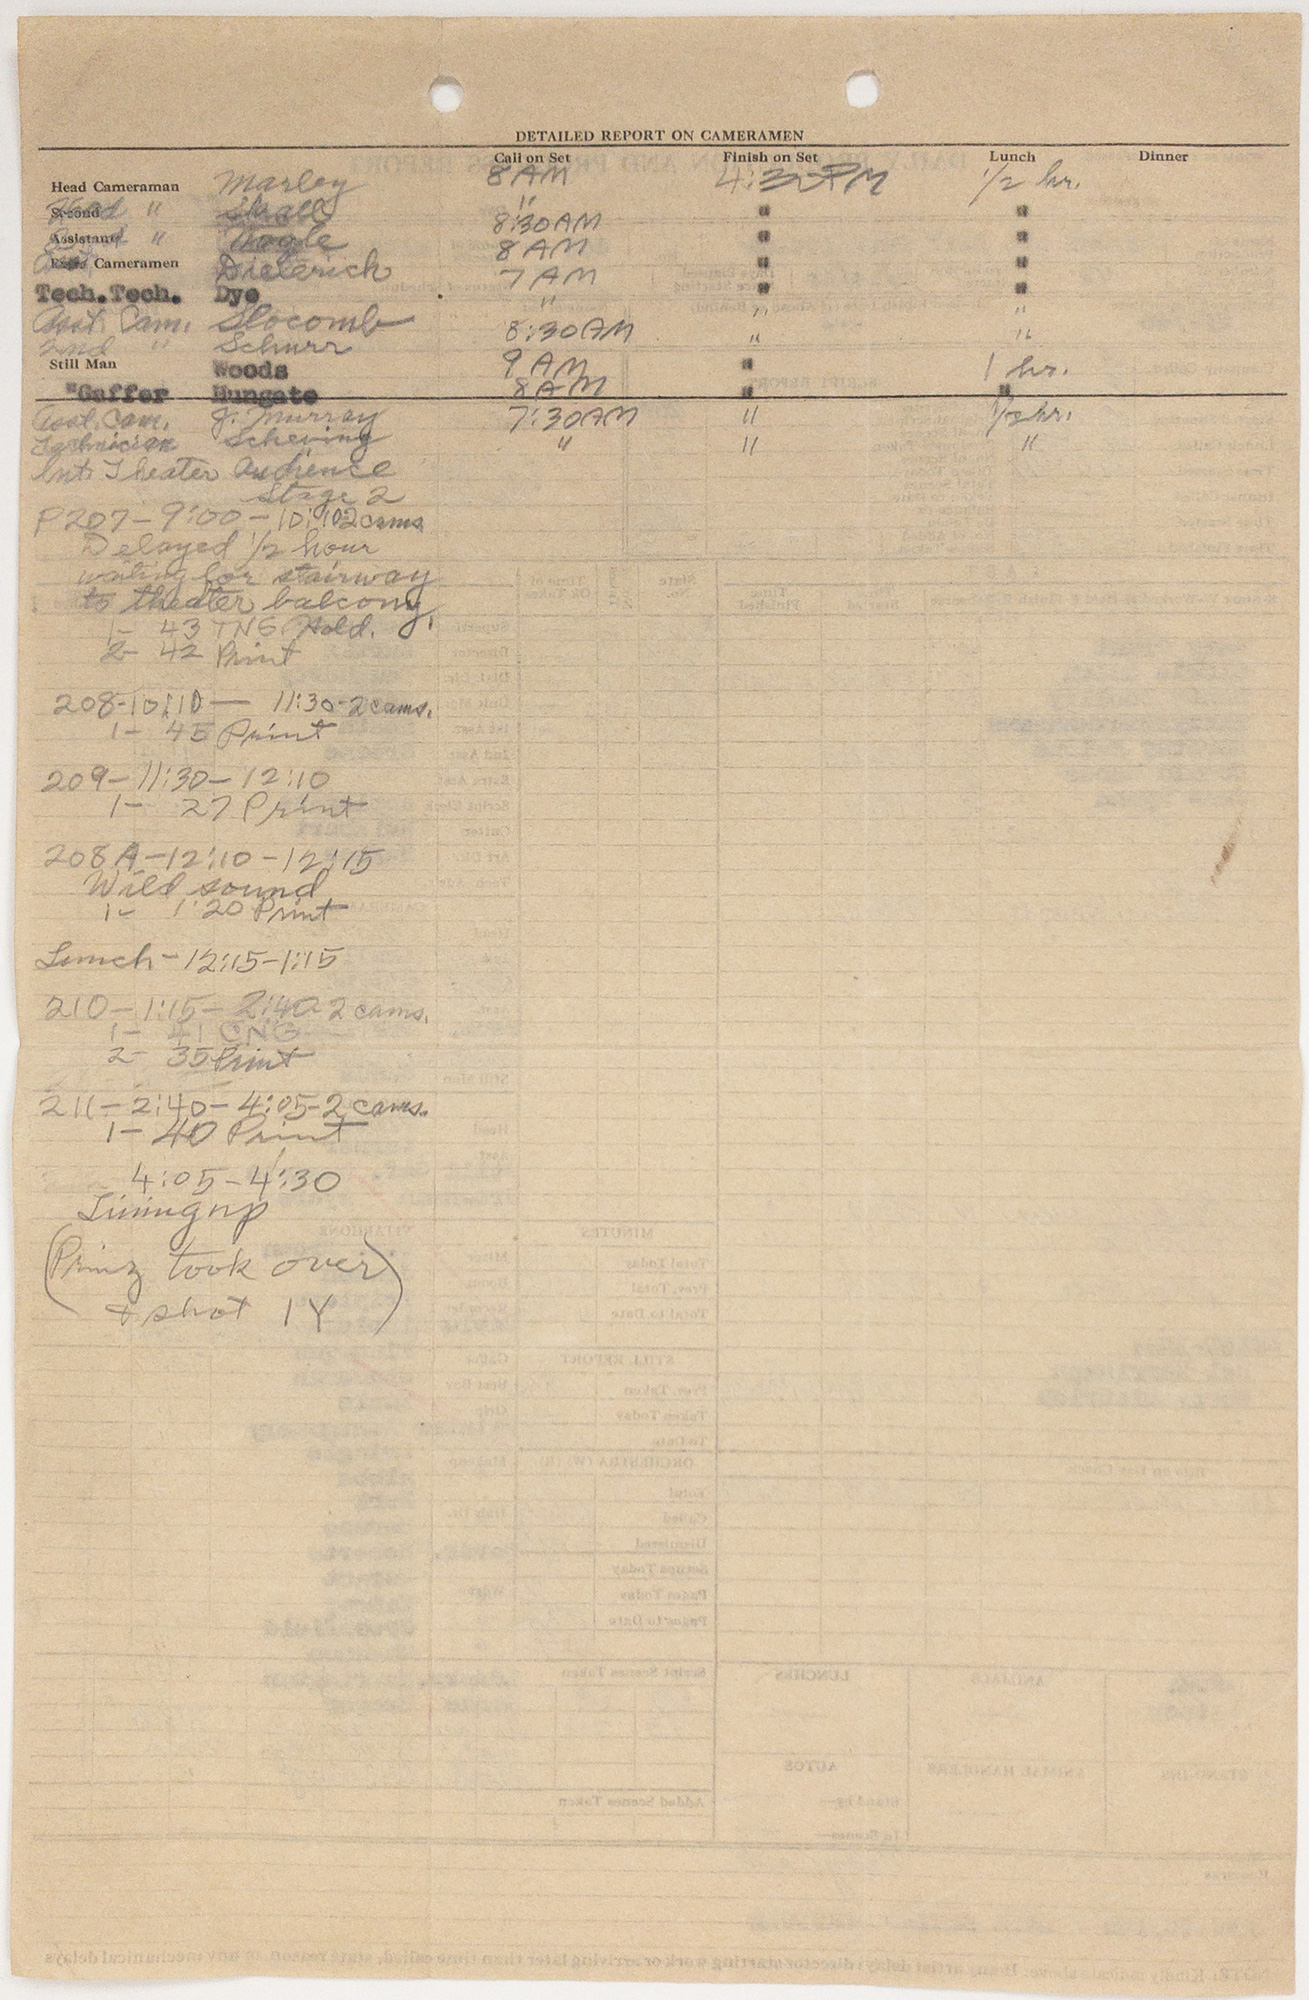 DETAILED REPORT ON CAMERAMEN
Call on Set Finish on Set Lunch Dinner
Head Cameraman Marley 8 AM 4:30 PM 1/2 hr.
Second " Skall " " "
Assistant " Cagle 8:30 AM " "
Extra Cameramen Dieterich 8 AM " "
Tech.Tech. Dye 7 AM " "
Asst. Cam. Slocomb " " "
2nd " Schurr 8:30 AM " "
Still Man Woods 9 AM " 1 hr.
"Gaffer Hungate 8 AM " "
Asst. Cam. J. Murray 7:30 AM " 1/2 hr.
Technician Scheving " " "
Int. Theater Audience
Stage 2
P207 - 9:00 - 10:10 2 cams
Delayed 1/2 hour
waiting for stairway
to theater balcony.
1- 43 TNG Hold.
2- 42 Print
208-10:10 — 11:30-2 cams.
1- 45 Print
209- 11:30- 12:10
1- 27 Print
208 A-12:10 -12:15
Wild sound
1- 1:20 Print
Lunch - 12:15-1:15
210- 1:15- 2:40-2 cams.
1- 41 CNG
2- 35 Print
211- 2:40- 4:05-2 cams.
1- 40 Print
4:05-4:30
Lining up
(Prinz took over
& shot 1Y)